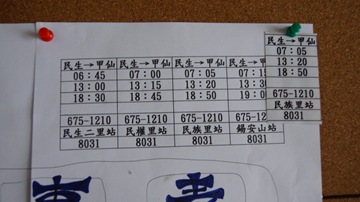 民生→甲仙 民生→甲仙 民生→甲仙
06:45 07:00 07:05 07:1
13:00 13:15 13:20
18:30 18:45 18:50 19:0
675-1210 675-1210 675-1210 675-1
民生二里站 民權里站 民族里站 錫安山站
8031 8031 8031 8031
民生→甲仙
07:05
13:20
18:50
675-1210
民族里站
8031